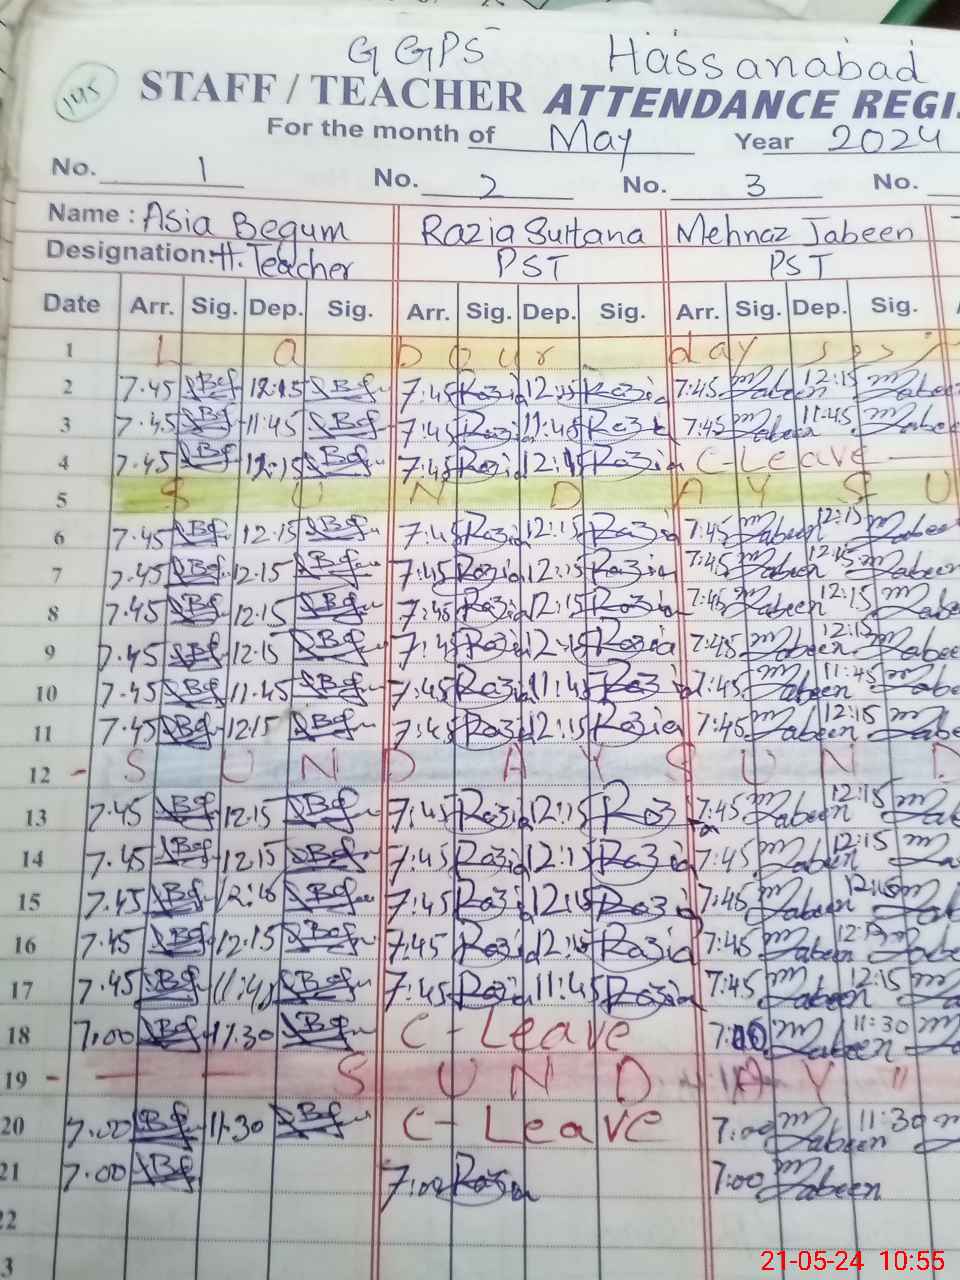 GGPS Hassanabad
145
STAFF / TEACHER ATTENDANCE REGI
For the month of May Year 2024
No. 1 No. 2 No. 3 No.
Name : Asia Begum Razia Sultana Mehnaz Jabeen
Designation: H. Teacher PST PST
Date Arr. Sig. Dep. Sig. Arr. Sig. Dep. Sig. Arr. Sig. Dep. Sig.
1 L a b o u r day
2 7.45 12:15 7:45 Razia 12:15 Razia 7:45 Jabeen 12:15 Jabeen
3 7.45 11:45 7:45 Razia 11:45 Razia 7:45 Jabeen 11:45 Jabee
4 7.45 12.15 7:45 Razia 12:15 Razia C-Leave
5 S U N D A Y S U
6 7.45 12.15 7:45 Razia 12:15 Razia 7:45 Jabeen 12:15 Jabee
7 7.45 12.15 7:45 Razia 12:15 Razia 7:45 Jabeen 12:15 Jabeen
8 7.45 12.15 7:45 Razia 12:15 Razia 7:45 Jabeen 12:15 Jabe
9 7.45 12.15 7:45 Razia 12:15 Razia 7:45 Jabeen 12:15 Jabe
10 7.45 11.45 7:45 Razia 11:45 Razia 7:45 Jabeen 11:45 Jabe
11 7.45 12.15 7:45 Razia 12:15 Razia 7:45 Jabeen 12:15 Jabe
12 - S U N D A Y S U N D
13 7.45 12.15 7:45 Razia 12:15 Razia 7:45 Jabeen 12:15 Jabe
14 7.45 12.15 7:45 Razia 12:15 Razia 7:45 Jabeen 12:15 Jabe
15 7.45 7:45 Razia 12:15 Razia 7:45 Jabeen 12:15 Jabe
16 7.45 12.15 7:45 Razia 12:15 Razia 7:45 Jabeen 12:15 Jabe
17 7.45 7:45 Razia 11:45 Razia 7:45 Jabeen 12:15 Jabe
18 7.00 11.30 C-Leave 7:00 Jabeen 11:30
19 - - - S U N D A Y "
20 7.00 11.30 C-Leave 7:00 Jabeen 11:30
21 7.00 7:00 Razia 7:00 Jabeen
22
3
21-05-24 10:55